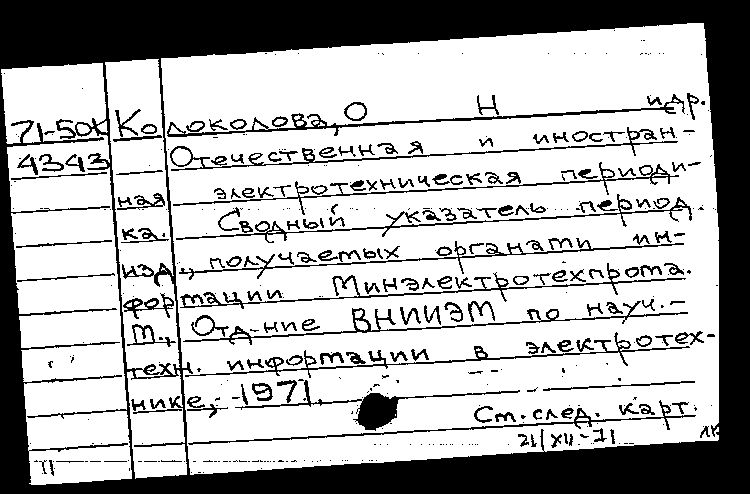 71-50К Колоколова, О Н и др.
4343 Отечественная и иностран-
ная электротехническая периоди-
ка. Сводный указатель период.
изд., получаемых органами ин-
формации Минэлектротехпрома.
М., Отд-ние ВНИИЭМ по науч.-
техн. информации в электротех-
нике, 1971.
См. след. карт.
21/XII-71